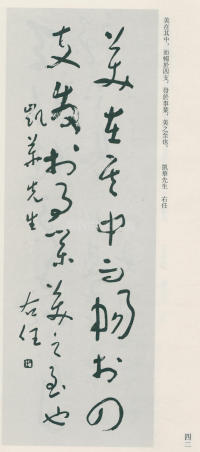 美在其中，而暢於四支，發於事業，美之至也。　凱華先生　右任
美在其中而暢於四
支發於事業美之至也
凱華先生
右任
四二